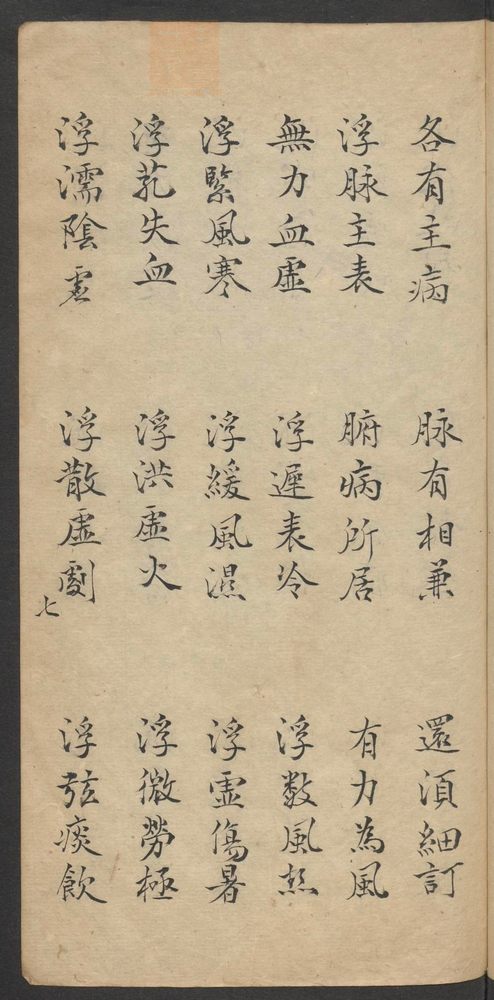 各有主病 脉有相兼 還須細訂
浮脉主表 腑病所居 有力為風
無力血虛 浮遲表冷 浮數風熱
浮緊風寒 浮緩風濕 浮虛傷暑
浮芤失血 浮洪虛火 浮微勞極
浮濡陰虛 浮散虛劇 浮弦痰飲
七